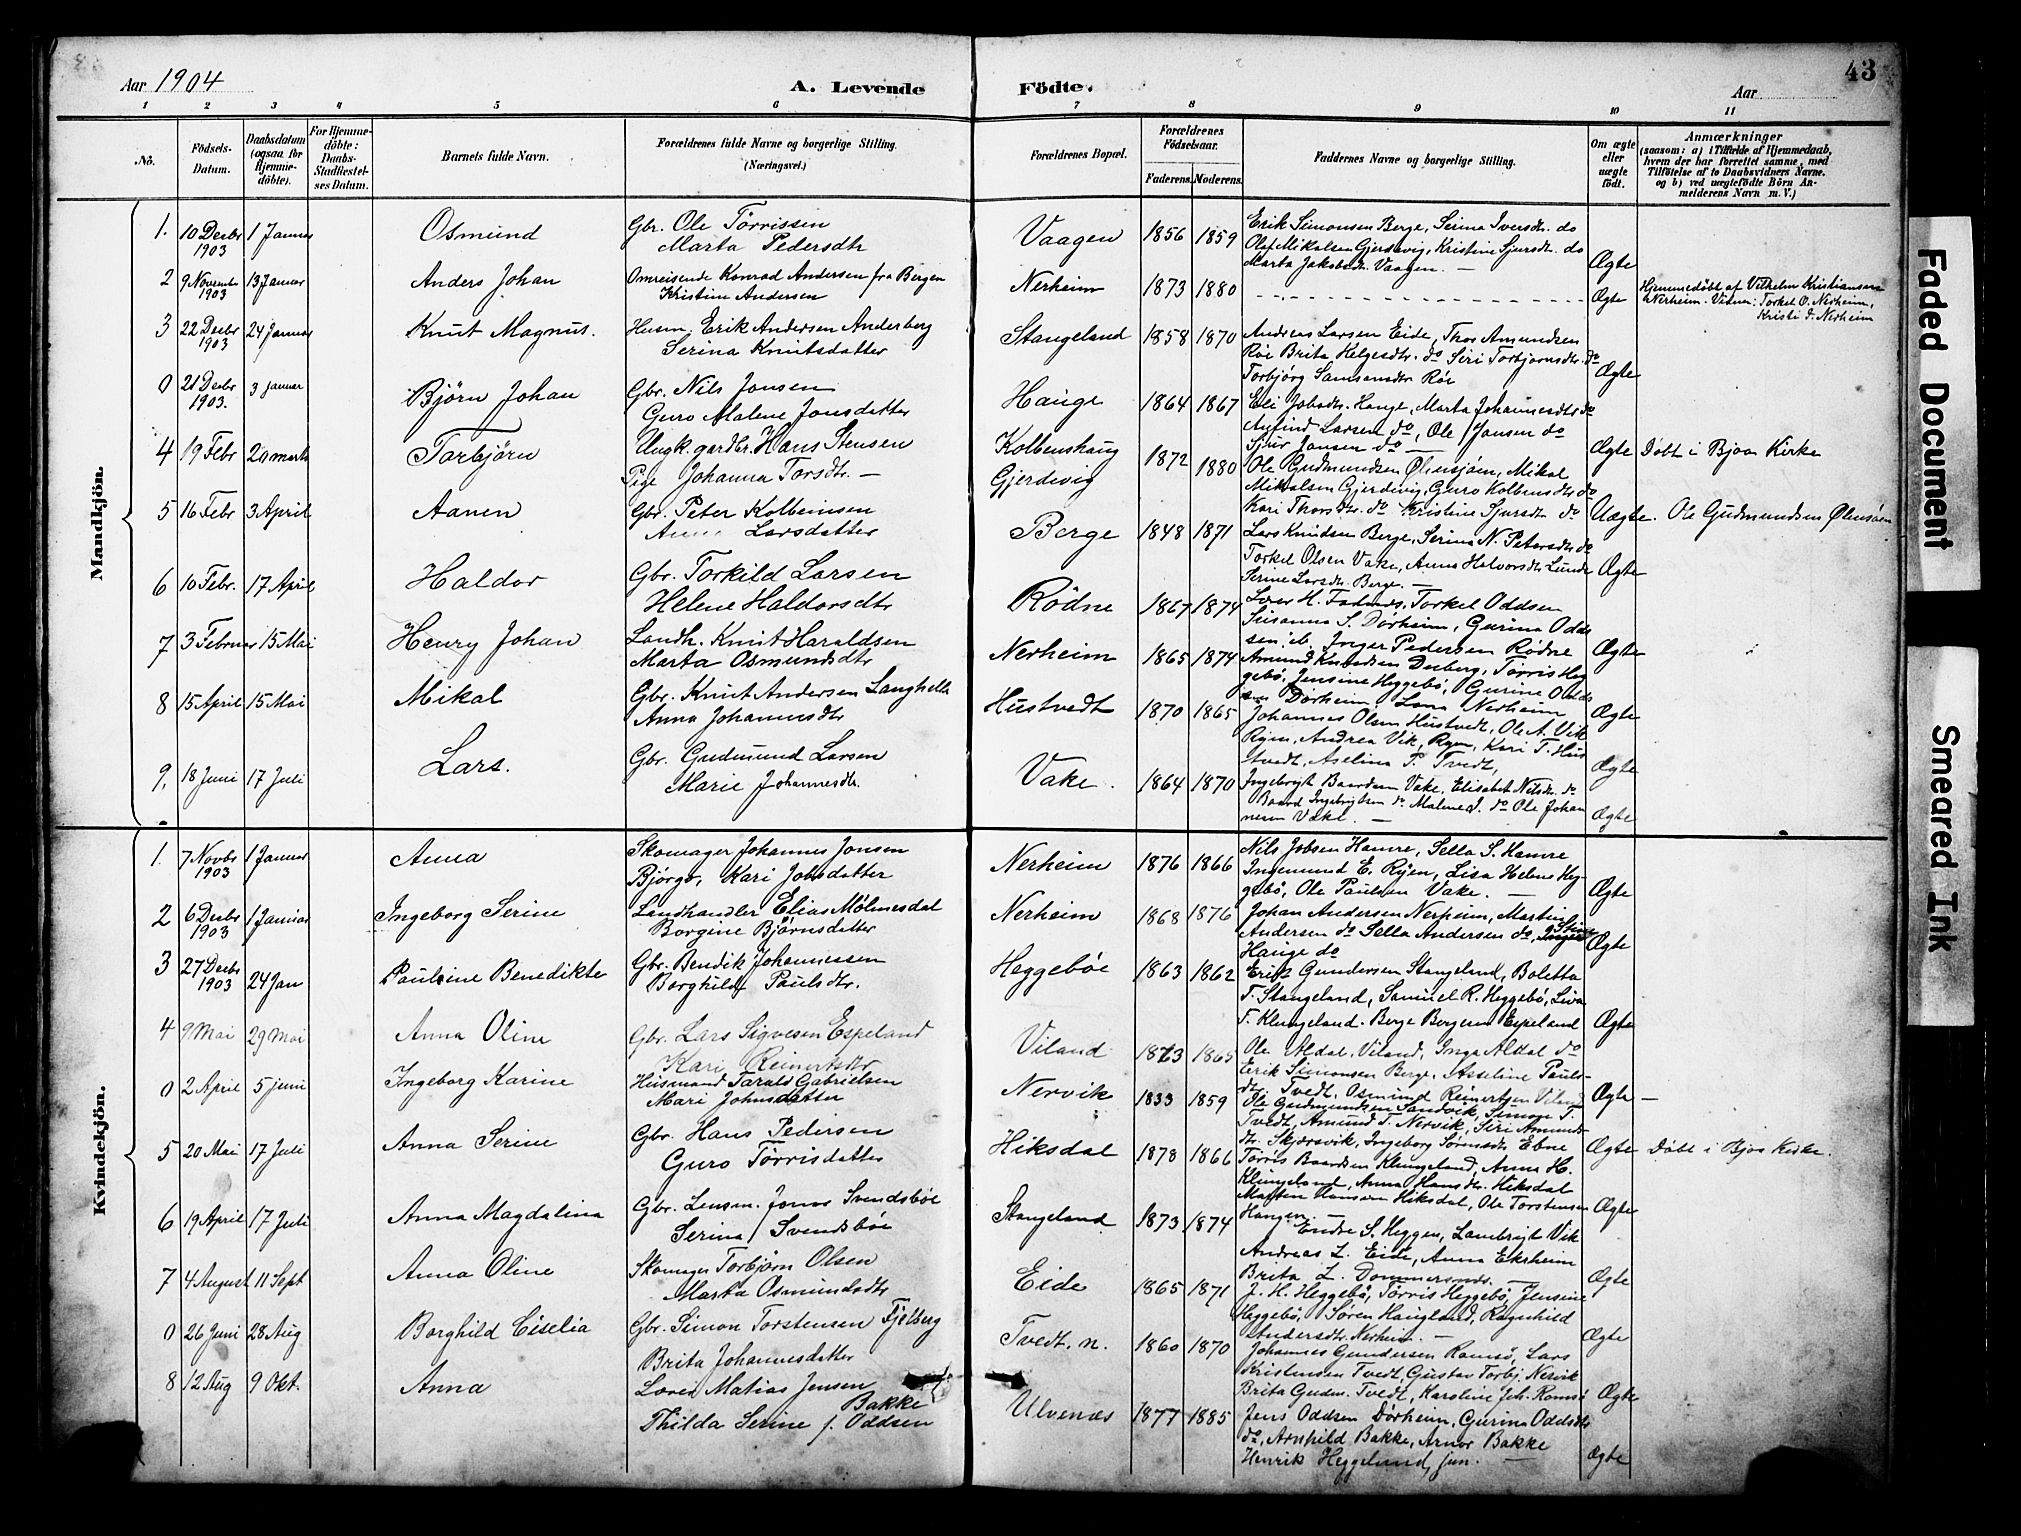 Aar 1904
A. Levende Födte.
Aar
43
1 2 3 4 5 6 7 8 9 10 11
No.
Födsels-Datum.
Daabsdatum (ogsaa for Hjemmedöbte).
For Hjemmedöbte: Daabs-Stadfæstelses Datum.
Barnets fulde Navn.
Forældrenes fulde Navne og borgerlige Stilling. (Næringsvei.)
Forældrenes Bopæl.
Forældrenes Födselsaar.
Faderens. Moderens.
Faddernes Navne og borgerlige Stilling.
Om ægte eller uægte födt.
Anmærkninger
(saasom: a) i Tilfælde af Hjemmedaab, hvem der har forrettet samme, med Tilföielse af to Daabsvidners Navne. og b) ved uægtefödte Börn Anmelderens Navn m. V.)
Mandkjön.
1. 10 Decbr 1903 1 Januar Osmund
Gbr. Ole Tørrissen
Marta Pedersdtr
Vaagen 1856 1859
Erik Simonsen Berge, Serina Iversdtr. do
Olaf Mikalsen Gjerdevig, Kristine Sjursdtr. do
Marta Jakobsdtr. Vaagen. — Ægte
2 9 November 1903 13 Januar Anders Johan
Omreisende Konrad Andersen fra Bergen
Kristine Andersen
Nerheim 1873 1880 Ægte
Hjemmedøbt af Vilhelm Kristiansen
Nerheim. Vidner: Torkel O. Nerheim,
Kristi d. Nerheim
3 22 Decbr 1903 24 Januar Knut Magnus.
Husm. Erik Andersen Anderberg
Serina Knutsdatter
Stangeland 1858 1870
Andreas Larsen Eide, Thor Amundsen
Röe Brita Helgesdtr. do Siri Torbjørnsdtr. do
Torbjörg Samsonsdtr Röe Ægte
0 21 Decbr 1903. 3 januar Björn Johan
Gbr. Nils Jonsen
Guro Malene Jonsdatter
Hauge 1864 1867
Eli Jobsdtr. Hauge, Marta Johannesdtr do
Anfind Larsen do, Ole Jonsen do
Sjur Jansen do — Ægte Døbt i Bjoa Kirke
4 19 Febr 20 marts Torbjörn
Ungk. gardbr. Hans Stensen
Pige Johanna Torsdtr. —
Kolbenshaug
Gjerdevig 1872 1880
Ole Gudmundsen Ølensjøen, Mikal
Mikalsen Gjerdevig, Guro Kolbensdtr do
Kari Thorsdtr. do Kristine Sjursdtr do Uægte. Ole Gudmundsen Ølensøen
5 16 Febr 3 April Aanen
Gbr. Peter Kolbeinsen
Larsdatter
Berge 1848 1871
Lars Knudsen Berge, Serina N. Petersdtr do
Torkel Olsen Vake, Anna Halvorsdtr Lunde
Serine Larsdtr. Berge. — Ægte
6 10 Febr. 17 April Haldor
Gbr. Torkild Larsen
Helene Haldorsdtr
Rödne 1867 1874
Torkel Oddsen
Susanna S. Dörheim, Gurina Oddsen
Inger Pedersen Rødne Ægte
7 3 Februar 15 Mai Henry Johan
Landh. Knut Haraldsen
Marta Osmundsdtr
Nerheim 1865 1874
Amund Knudsen Tørris Heggebö, Jensine Heggebö, Gurine Oddsen Dörheim, Lena Nerheim Ægte
8 15 April 15 Mai Mikal
Gbr. Knut Andersen Langhelle
Anna Johannesdtr
Hustvedt 1870 1865
Johannes Olsen Hustvedt, Ole A. Vik
Ryen, Andrea Vik, Ryen, Kari T. Hustvedt, Aselina P. Tvedt, Ægte
9. 18 Juni 17 Juli Lars.
Gbr. Gudmund Larsen
Marie Johannesdtr.
Vake. 1864 1870
Ingebrigt Baardsen Vake, Elisabet Nilsdtr. do
Baard Ingebrigtsen do Malene J. do Ole Johannesen Vake. — Ægte
Kvindekjön.
1. 7 Novbr 1903 1 Januar Anna
Skomager Johannes Jonsen
Bjørgo, Kari Jobsdatter
Nerheim 1876 1866
Nils Jobsen Hamre, Sella S. Hamre
Ingemund E. Ryen, Lisa Helene Heggebø, Ole Paulsen Vake. — Ægte
2 6 Decbr 1903 1 Januar Ingeborg Serine
Landhandler Elias Mölmesdal
Borgine Bjørnsdatter
Nerheim 1868 1876
Johan Andersen Nerheim, Martin
Andersen do Sella Andersen do,
Hauge do Ægte
3 27 Decbr 1903 24 Jan Paulsine Benedikte
Gbr. Bendik Johannessen
Borghild Paulsdtr.
Heggebøe 1863 1862
Erik Gundersen Stangeland, Boletta
T. Stangeland, Samuel R. Heggebö, Lisa
T. Klungeland. Berge Bergesen Espeland Ægte
4 9 Mai 29 Mai Anna Oline
Gbr. Lars Sigvesen Espeland
Kari Reinertsdtr
Viland 1863 1865
Ole Aldal, Viland, Inga Aldal do
Erik Simonsen Berge, Asseline Paulsdtr Tvedt, Osmund Reinertsen Viland Ægte —
0 2 April 5 juni Ingeborg Karine
Husmand Tarald Gabrielsen
Mari Johnsdatter
Nervik 1833 1859
Ole Gudmundsen Sandvik, Simon T.
Tvedt, Amund T. Nervik, Siri Amundsdtr. Skjersvik, Ingeborg Sørensdtr Ebne Ægte Döbt i Bjoa Kirke.
5 20 Mai 17 Juli Anna Serine
Gbr. Hans Pedersen
Guro Tørrisdatter
Hiksdal 1878 1866
Tørris Baardsen Klungeland, Anna H.
Klungeland, Anna Hansdtr. Hiksdal
Morten Hansen Hiksdal, Ole Torstensen
Haugen. — Ægte
6 19 April 17 Juli Anna Magdalina
Gbr. Lensm. Jonas Svendsbøe
Serina Svendsbøe
Stangeland 1873 1874
Endre S. Heggen, Lambrigt Vik
Andreas L. Eide, Anna Eksheim
Brita L. Dommersnæs. Ægte
7 4 August 11 Sept Anna Oline
Skomager Torbjørn Olsen
Marta Osmundsdtr
Eide 1865 1871
J. H. Heggebø, Tørris Heggebø, Jensine
Heggebø, Søren Haugland, Ragnhild
Andersdtr. Nerheim. — Ægte
0 26 Juni 28 Aug Borghild Ciselia
Gbr. Simon Torstensen Fjelberg
Brita Johannesdatter
Tvedt. n. 1860 1870
Johannes Gundersen Ramsø, Lars
Kristensen Tvedt, Gustav Torbj. Nervik
Brita Gudm. Tvedt, Karoline Joh. Ramsø Ægte
8 12 Aug 9 Okt. Anna
Matias Jensen
Bakke
Thilda Serine f. Oddsen
Ulvenæs 1877 1885
Jens Oddsen Dørheim, Gurina Oddsdtr
do, Arnhild Bakke, Arnor Bakke
Henrik Heggelund, jun. — Ægte
Faded Document
Smeared Ink